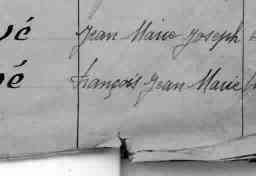 vé Jean Marie Joseph
é François Jean Marie